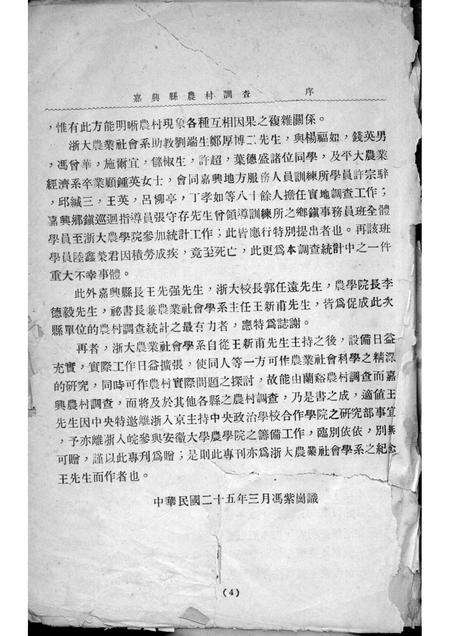 嘉興縣農村調查　序
，惟有此方能明晰農村現象各種互相因果之複雜關係。
浙大農業社會系助敎劉端生鄭厚博二先生，與楊福如，錢英男
，馮曾華，施爾宜，儲椒生，許超，葉德盛諸位同學，及平大農業
經濟系卒業顧鍾英女士，會同嘉興地方服務人員訓練所學員許宗駢
，邱緘三，王英，呂柳亭，丁孝如等八十餘人擔任實地調查工作；
嘉興鄉鎭巡迴指導員張守存先生曾領導訓練所之鄉鎭事務員班全體
學員至浙大農學院參加統計工作；此皆應行特別提出者也。再該班
學員陸鑫業君因積勞成疾，竟至死亡，此更爲本調查統計中之一件
重大不幸事體。
此外嘉興縣長王先强先生，浙大校長郭任遠先生，農學院長李
德毅先生，祕書長兼農業社會學系主任王新甫先生，皆爲促成此次
縣單位的農村調查統計之最有力者，應特爲誌謝。
再者，浙大農業社會學系自從王新甫先生主持之後，設備日益
充實，實際工作日益擴張，使同人等一方可作農業社會科學之精深
的研究，同時可作農村實際問題之探討，故能由蘭谿農村調查而嘉
興農村調查，而將及於其他各縣之農村調查，乃是書之成，適値王
先生因中央特邀離浙入京主持中央政治學校合作學院之研究部事宜
，予亦離浙入皖參與安徽大學農學院之籌備工作，臨別依依，別無
可贈，謹以此專刊爲贈；是則此專刊亦爲浙大農業社會學系之紀念
王先生而作者也。
中華民國二十五年三月馮紫崗識
(4)